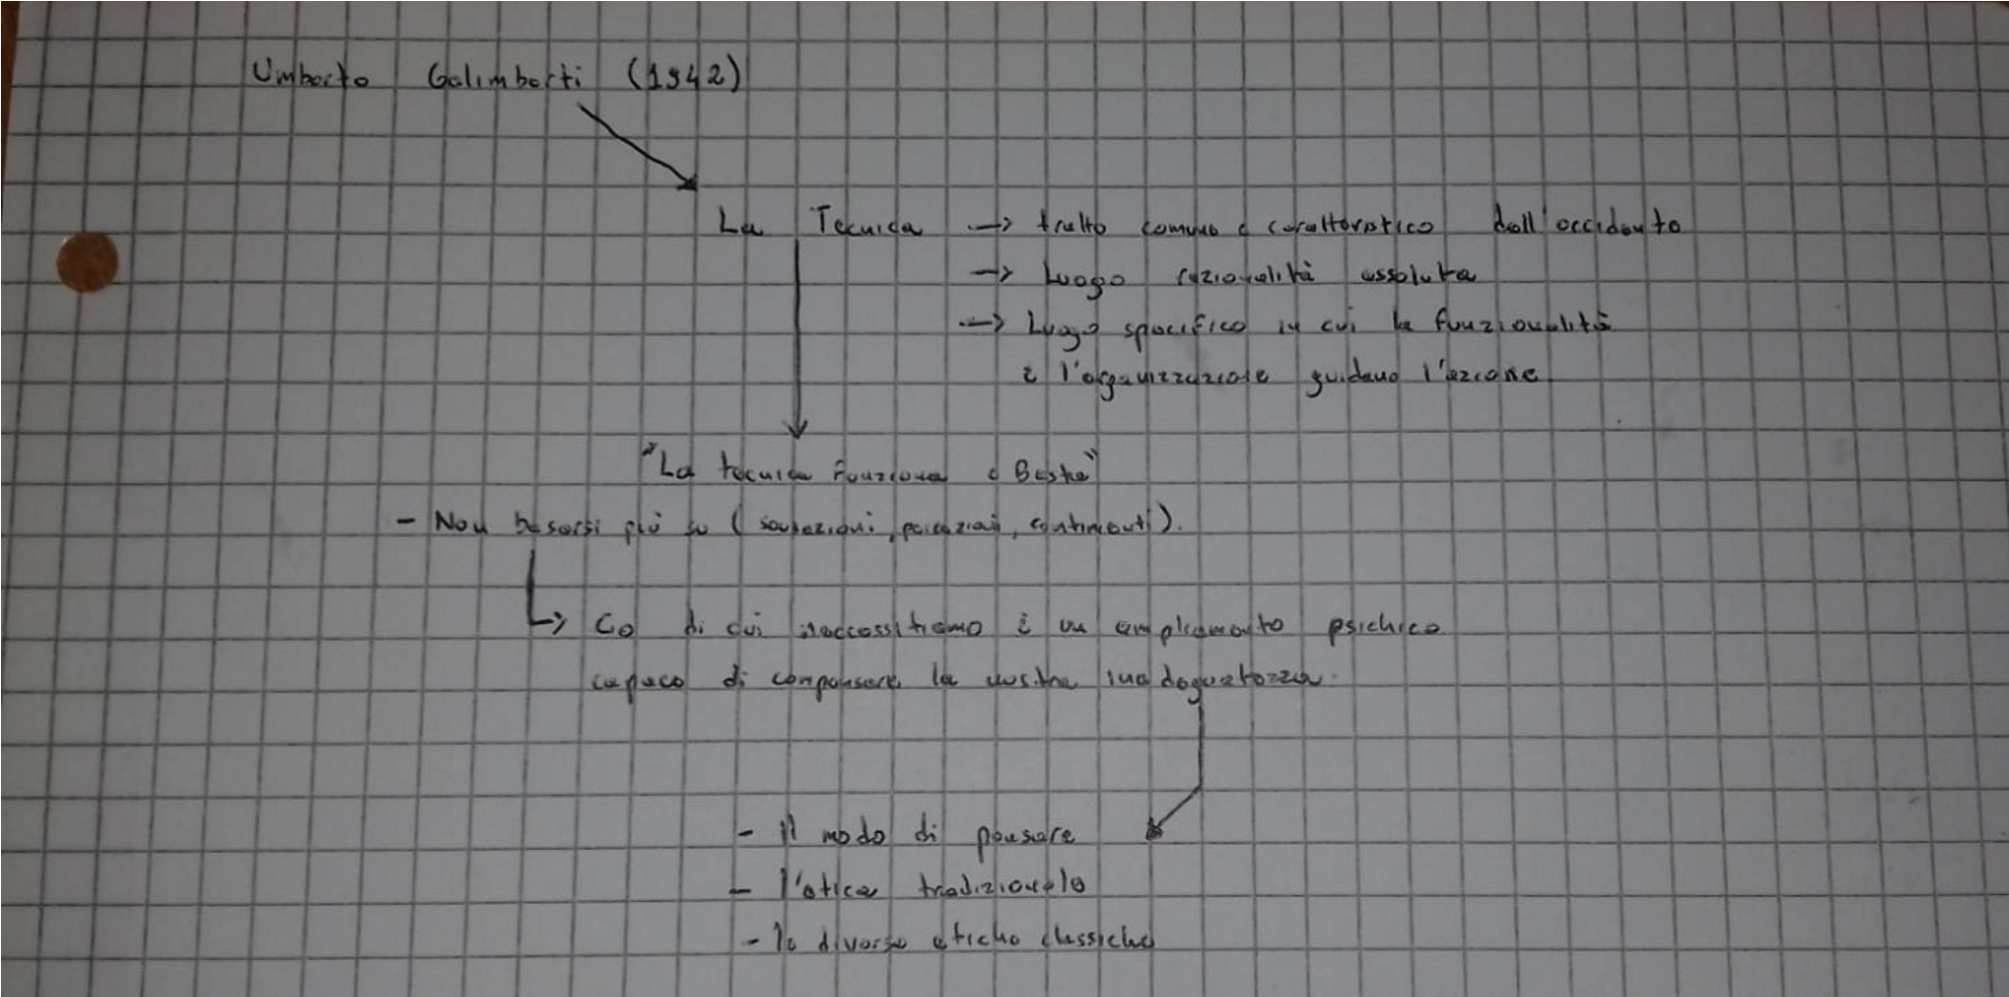 Umberto Galimberti (1942)
La Tecnica -> tratto comune e caratteristico dell'occidente
-> Luogo razionalità assoluta
-> Luogo specifico in cui la funzionalità
e l'organizzazione guidano l'azione
"La tecnica Funziona e Basta"
- Non basarsi più su ( sensazioni, percezioni, sentimenti).
-> Cio di cui neccessitiamo è un ampliamento psichico
capace di compensare la nostra inadeguatezza
- il modo di pensare
- l'etica tradizionale
- le diverse etiche classiche